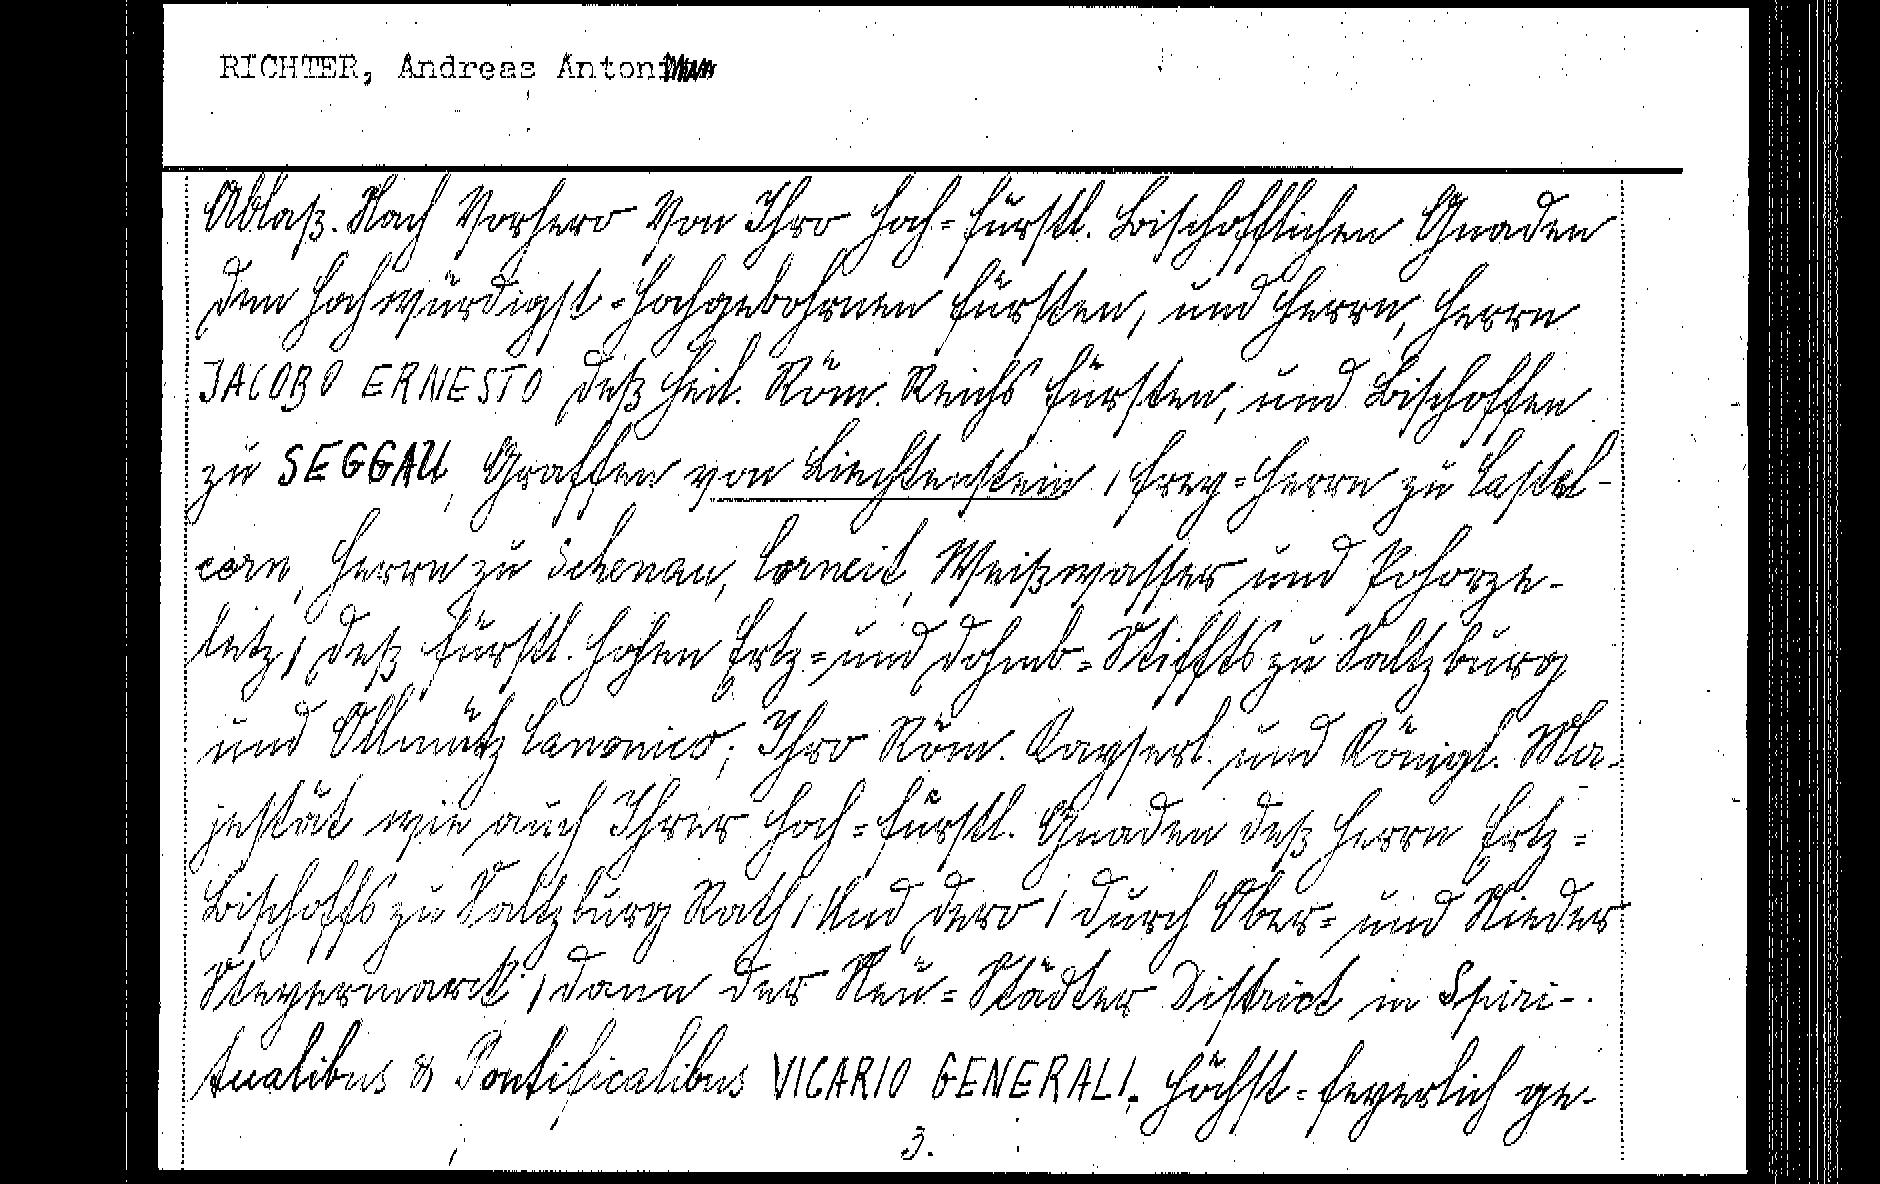 RICHTER, Andreas Anton
Ablaß. Nach Vorhero Von Ihro Hoch=fürstl. Bischofflichen Gnaden
dem Hochwürdigst=Hochgebohrnen Fürsten, und Herrn, Herrn
JACOBO ERNESTO deß Heil. Röm. Reichs Fürsten, und Bischoffen
zu SEGGAU, Graffen von Liechtenstein, Frey=Herrn zu Castel-
corn, Herrn zu Schenau, Corneit, Weißwasser und Pohorze-
litz, deß Fürstl. Hohen Ertz=und Dohmb=Stiffts zu Saltzburg
und Ollmütz Canonico; Ihro Röm. Kayserl. und Königl. Ma-
jestät wie auch Ihrer Hoch=fürstl. Gnaden deß Herrn Ertz=
Bischoffs zu Saltzburg Rath, Und dero, durch Ober= und Nieder
Steyermarck, dann der Neü=Städter District in Spiri-
tualibus & Pontificalibus VICARIO GENERALI. Höchst=feyerlich ge-
3.